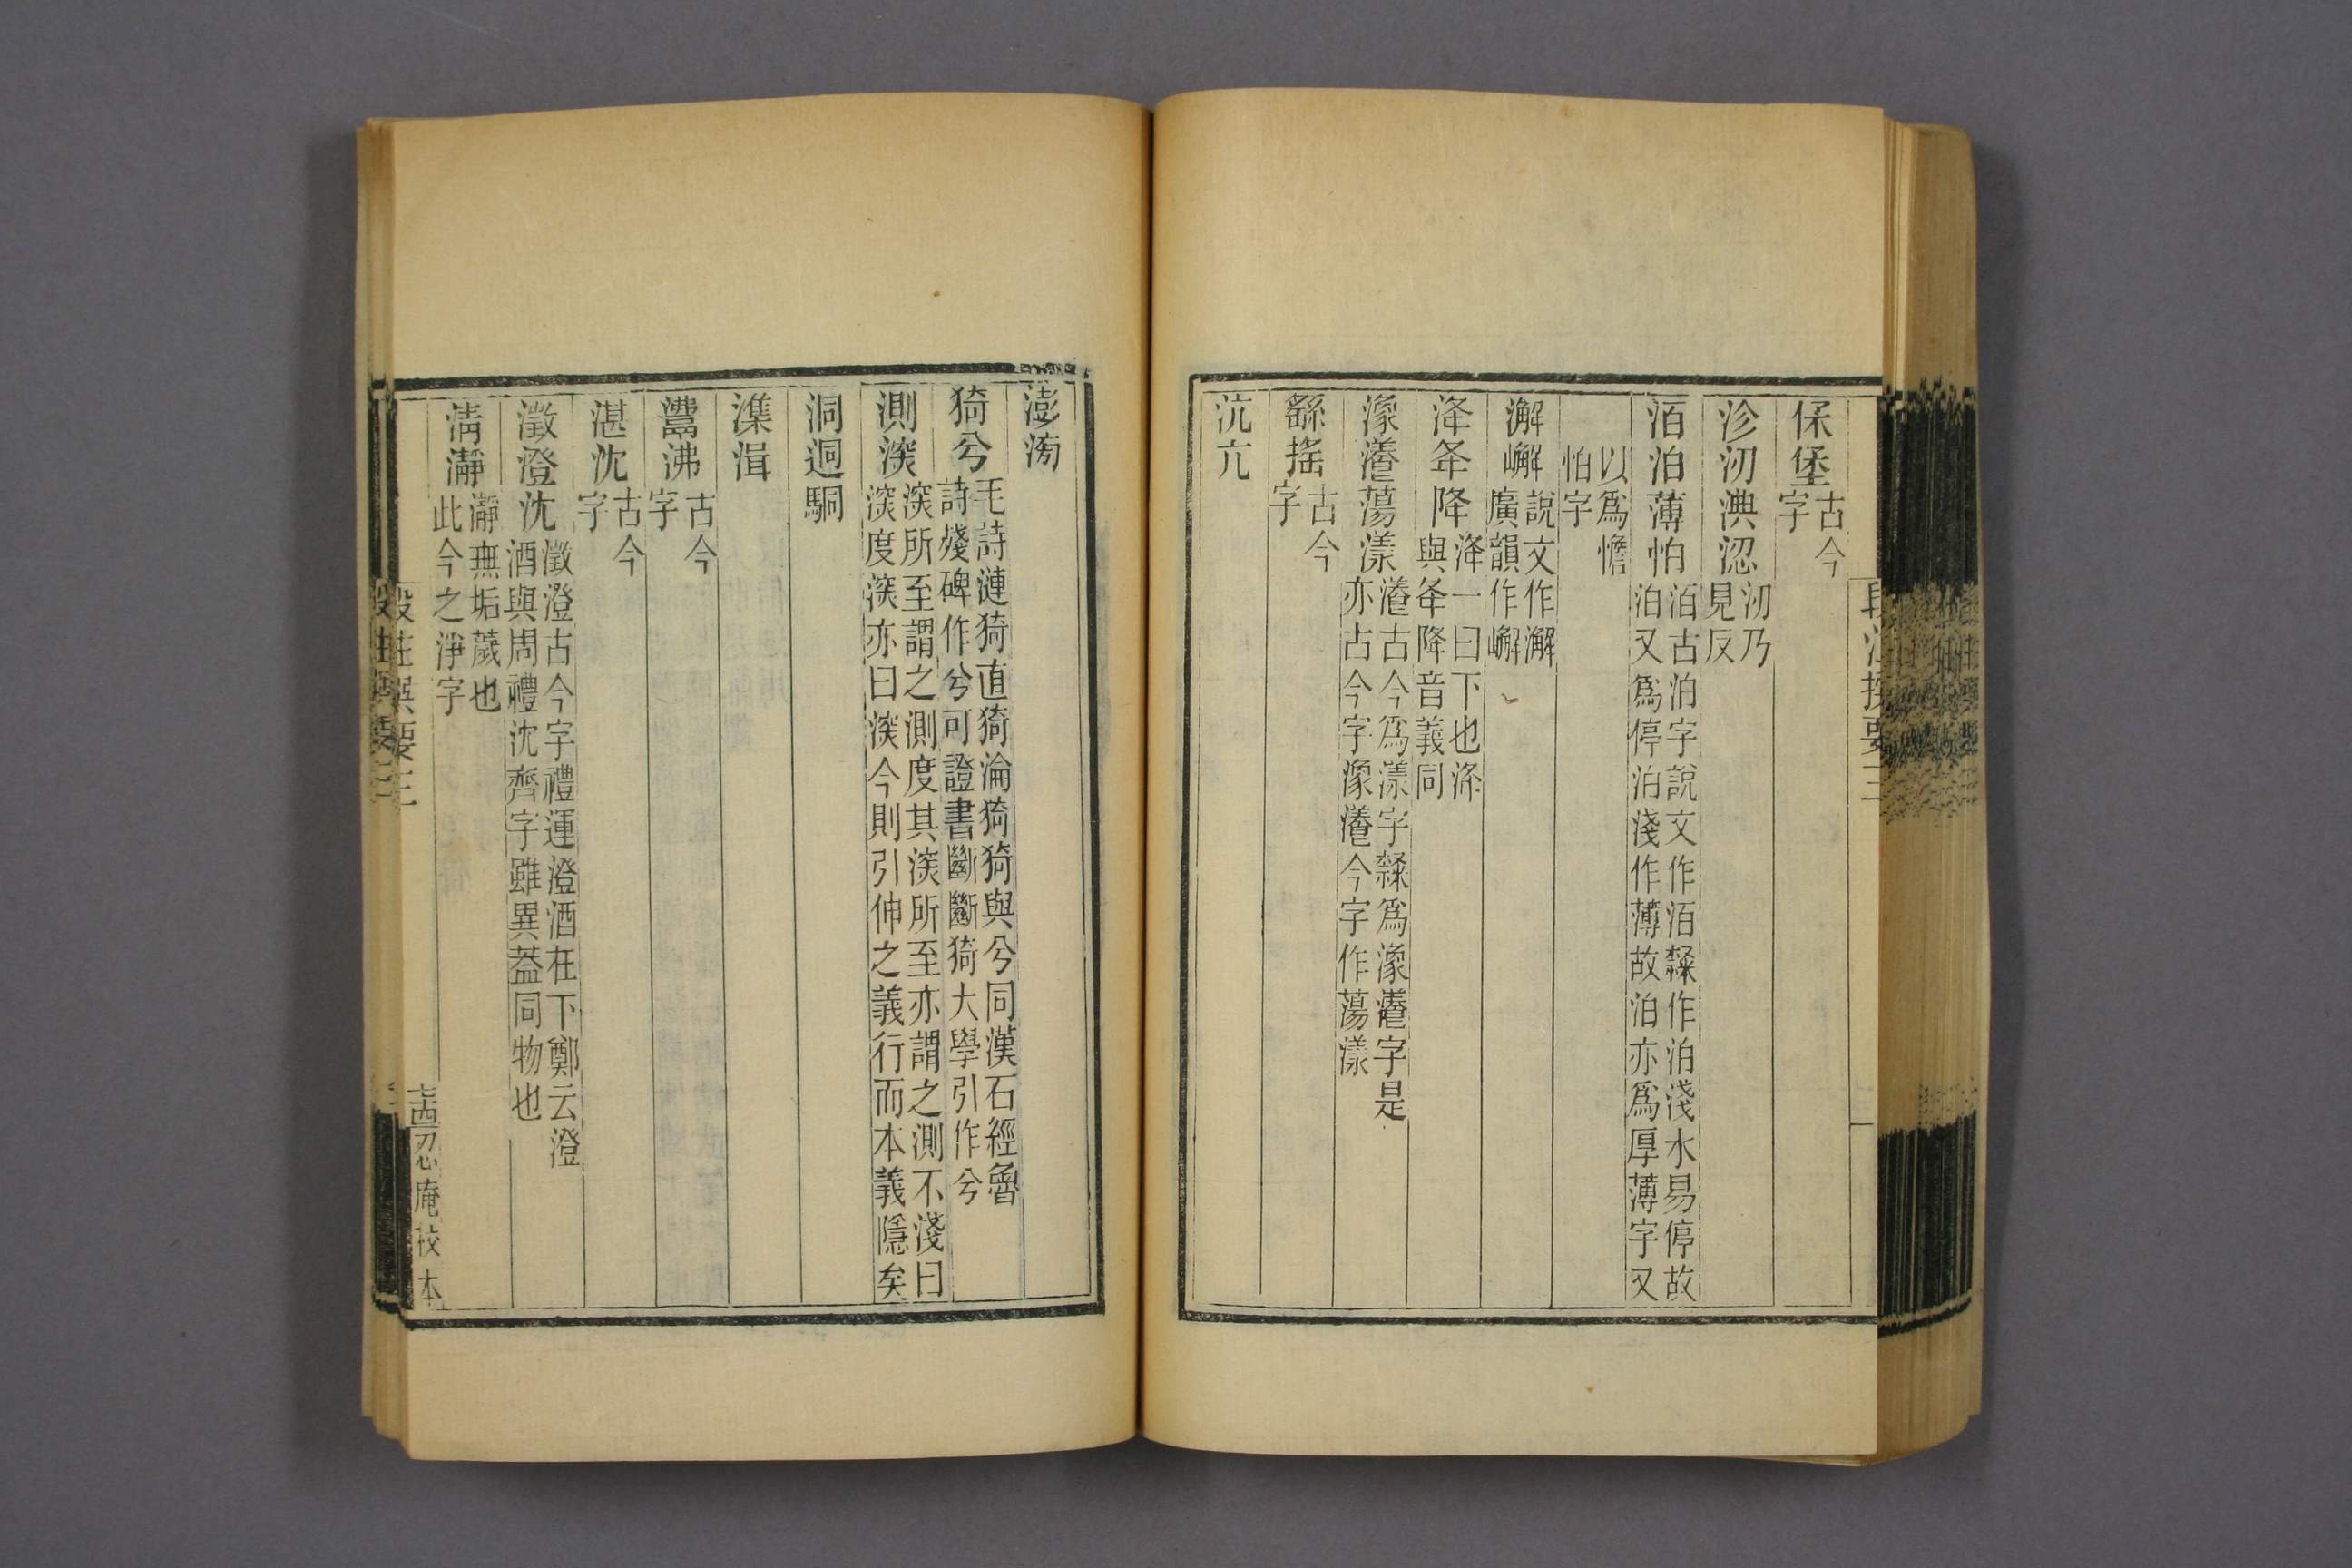 㑔堡 古今字
沴沕淟涊 沕乃見反
洦泊薄怕 洦古泊字說文作洦隸作泊淺水易停故泊又爲停泊淺作薄故泊亦爲厚薄字又
以爲憺怕字
澥嶰 說文作澥廣韻作嶰
洚夅降 洚一曰下也洚與夅降音義同
潒瀁蕩漾 瀁古今爲漾字隸爲潒瀁字是亦古今字潒瀁今字作蕩漾
繇搖 古今字
沆亢
段注撰要三
澎滂
猗兮 毛詩漣猗直猗淪猗猗與兮同漢石經魯詩殘碑作兮兮可證書斷斷猗大學引作兮
測深 深所至謂之測度其深所至亦謂之測不淺曰深度深亦曰深今則引伸之義行而本義隱矣
洞迵駧
潗湒
灃沸 古今字
湛沈 古今字
澂澄沈 澂澄古今字禮運澄酒在下鄭云澄酒與周禮沈齊字雖異葢同物也
淸瀞 瀞無垢薉也此今之淨字
段注撰要三
忍庵校本